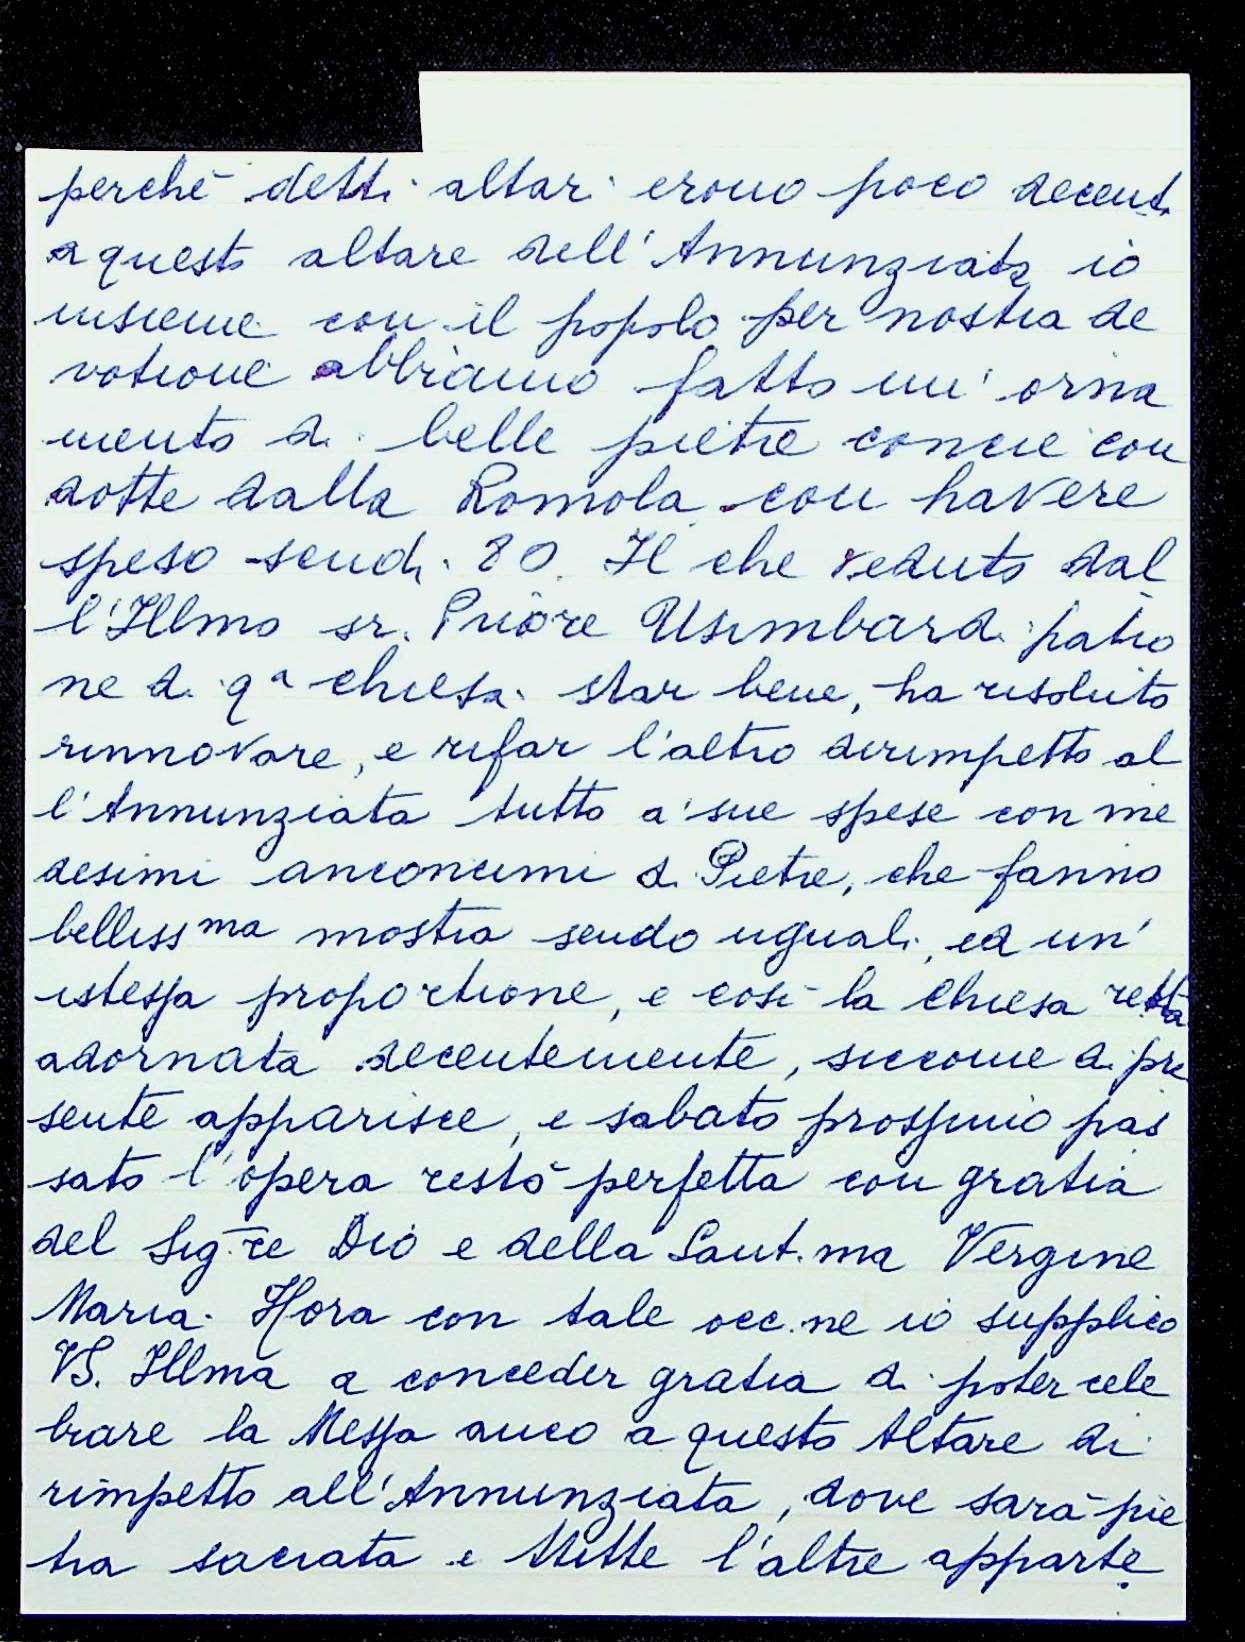 perchè detti altari erono poco decenti
a questo altare dell'Annunziata io
insieme con il popolo per nostra de
votione abbiamo fatto un' orna
mento di belle pietre concie con
dotte dalla Romola con havere
speso scudi 80. Il che veduto dal
l'Illmo sr. Priore Usimbardi patro
ne di qa chiesa star bene, ha risoluto
rinnovare, e rifar l'altro dirimpetto al
l'Annunziata tutto a sue spese con me
desimi anconcimi di Pietre, che fanno
bellissma mostra sendo uguali, ed un'
istessa proportione, e così la Chiesa resta
adornata decentemente, siccome di pre
sente apparisce, e sabato prossimo pas
sato l'opera restò perfetta con gratia
del Sig.re Dio e della Sant.ma Vergine
Maria. Hora con tale occ.ne io supplico
VS. Illma a conceder gratia di poter cele
brare la Messa anco a questo Altare di
rimpetto all'Annunziata, dove sarà pie
tra sacrata e tutte l'altre apparte